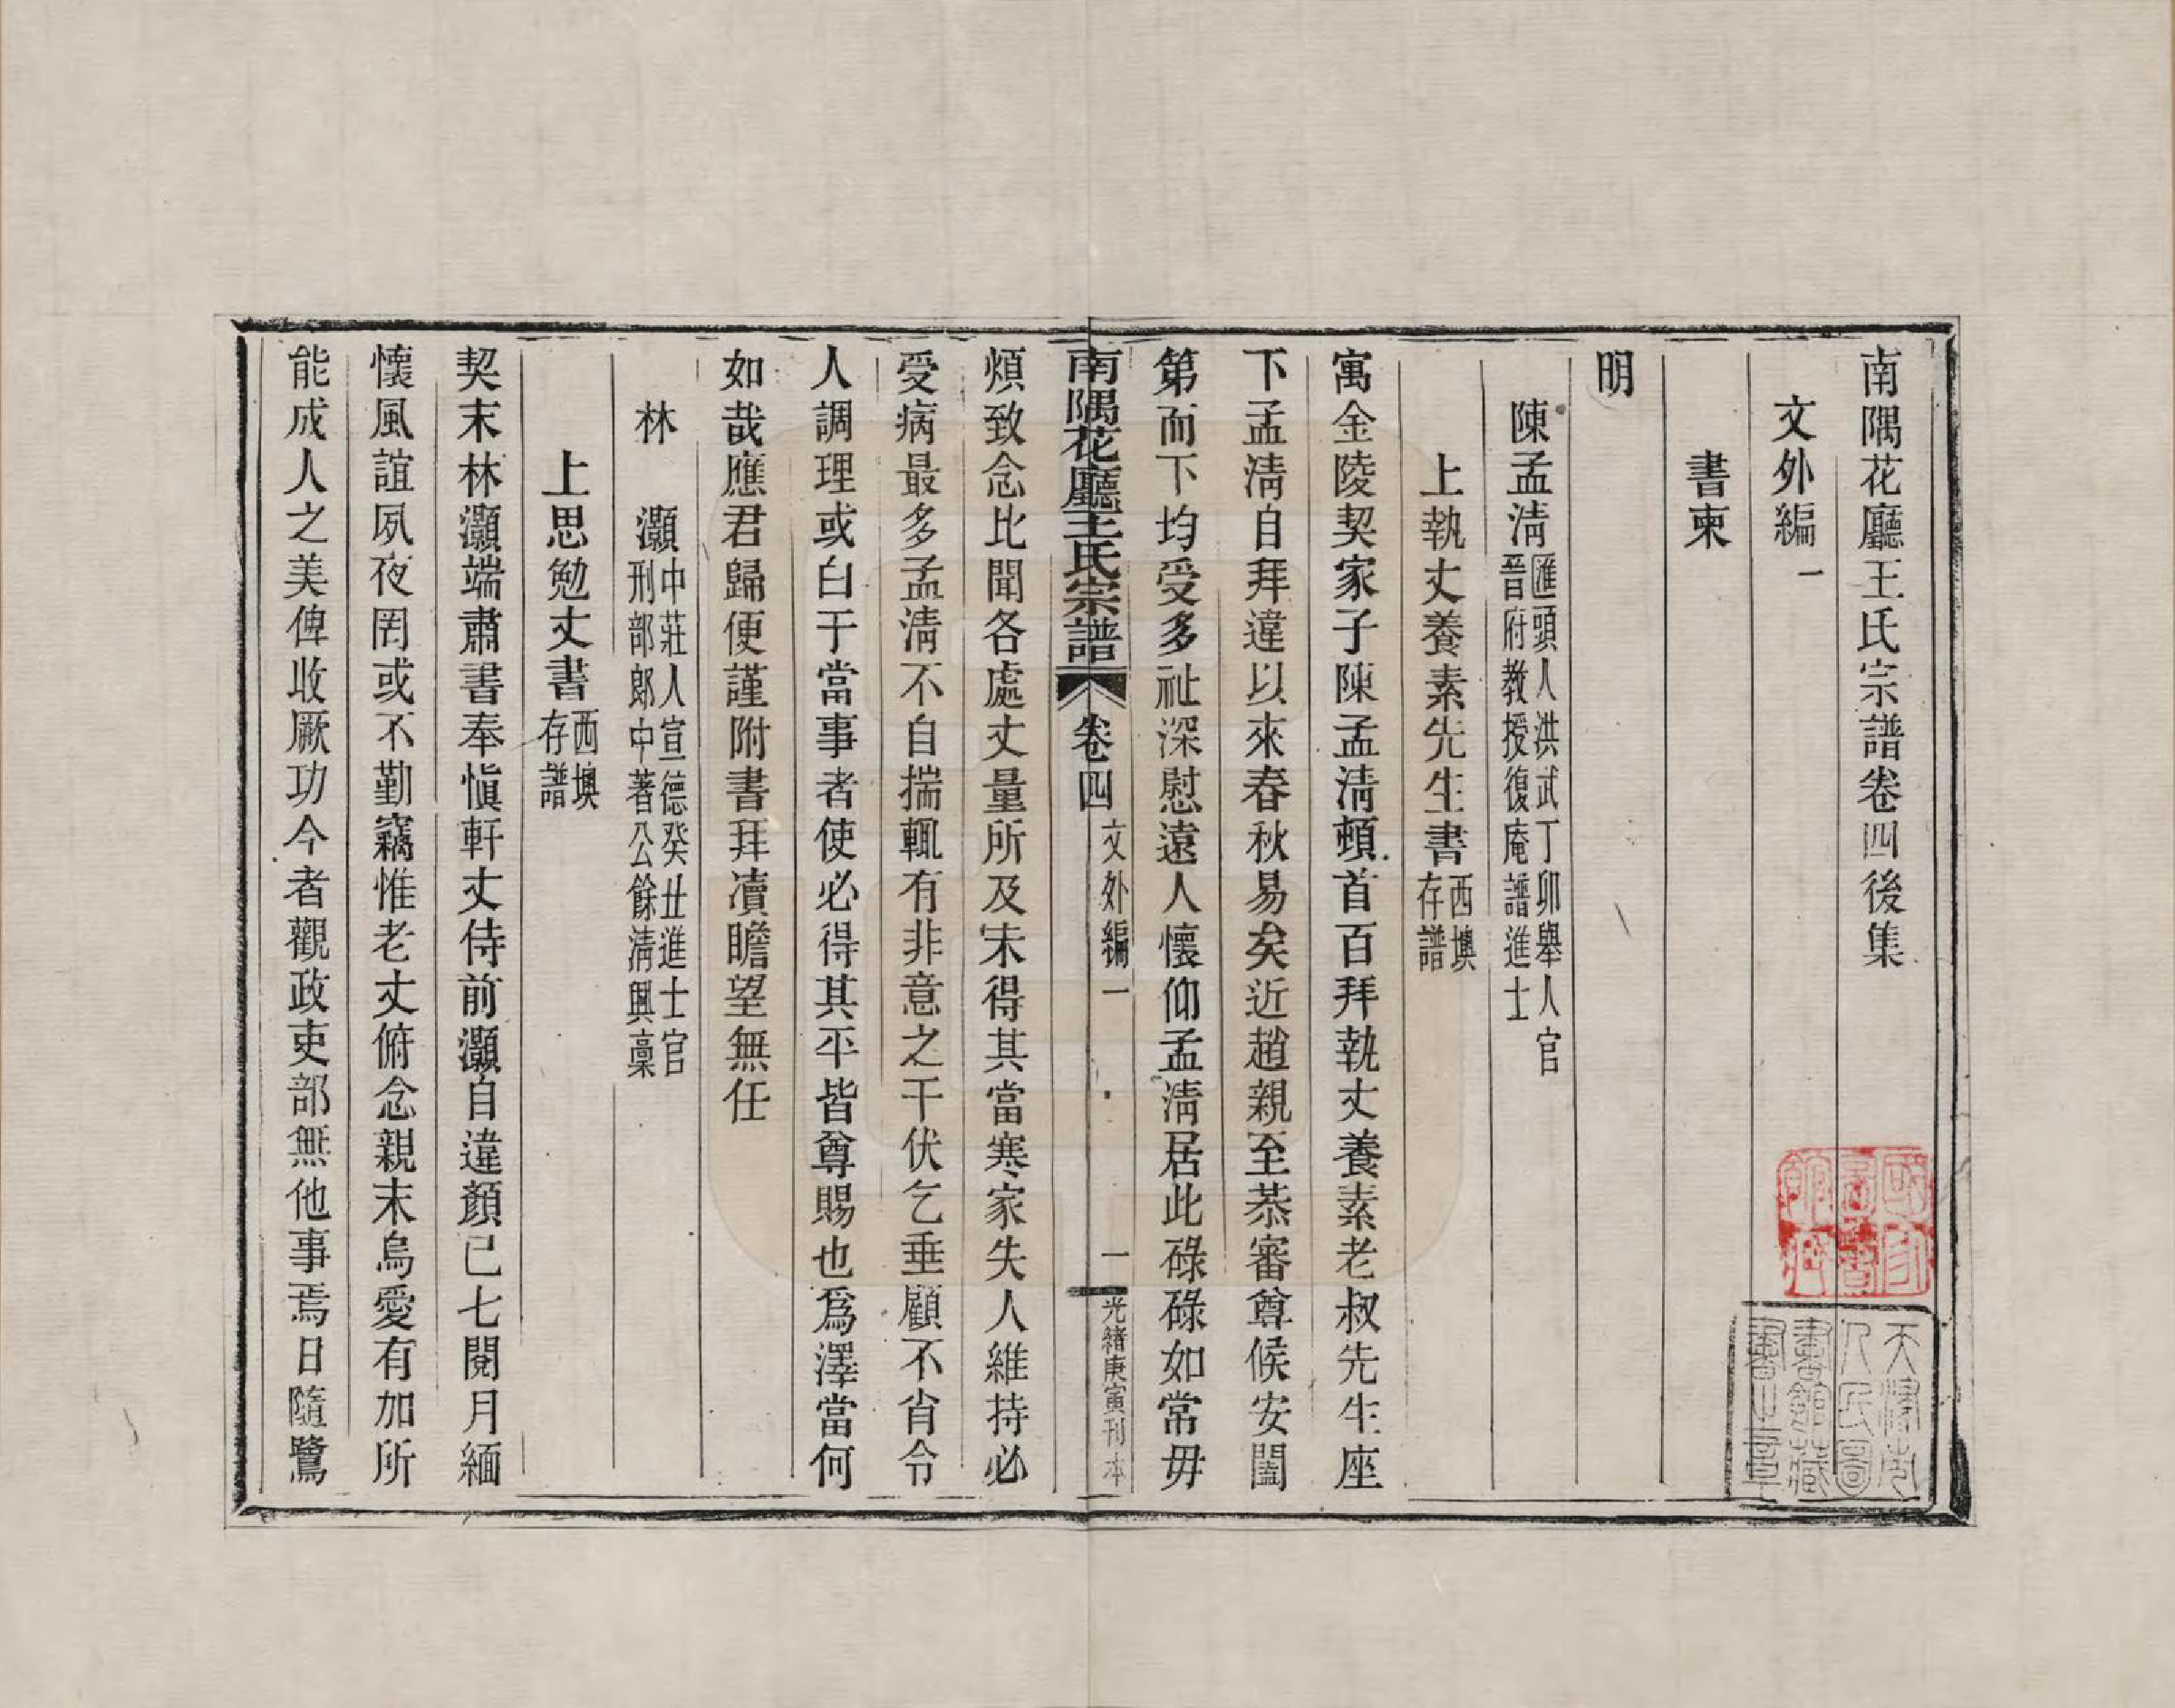 南隅花廳王氏宗譜卷四後集
文外編一
書柬
明
陳孟淸
滙頭人洪武丁卯舉人官
晉府教授復庵譜進士
上執丈養素先生書
西墺
存譜
寓金陵契家子陳孟淸頓首百拜執丈養素老叔先生座
下孟淸自拜違以來春秋易矣近趙親至恭審尊候安闔
第而下均受多祉深慰遠人懷仰孟淸居此碌碌如常毋
南隅花廳王氏宗譜
卷四
文外編一
一
光緒庚寅刊本
煩致念比聞各處丈量所及未得其當寒家失人維持必
受病最多孟淸不自揣輒有非意之干伏乞垂顧不肖令
人調理或白于當事者使必得其平皆尊賜也爲澤當何
如哉應君歸便謹附書拜凟瞻望無任
林 灝
中莊人宣德癸丑進士官
刑部郎中著公餘淸興稾
上思勉丈書
西墺
存譜
契末林灝端肅書奉愼軒丈侍前灝自違顏已七閱月緬
懷風誼夙夜罔或不勤竊惟老丈俯念親末烏愛有加所
能成人之美俾收厥功今者觀政吏部無他事焉日隨鷺
國家圖書館藏
天津市人民圖書館藏書之章